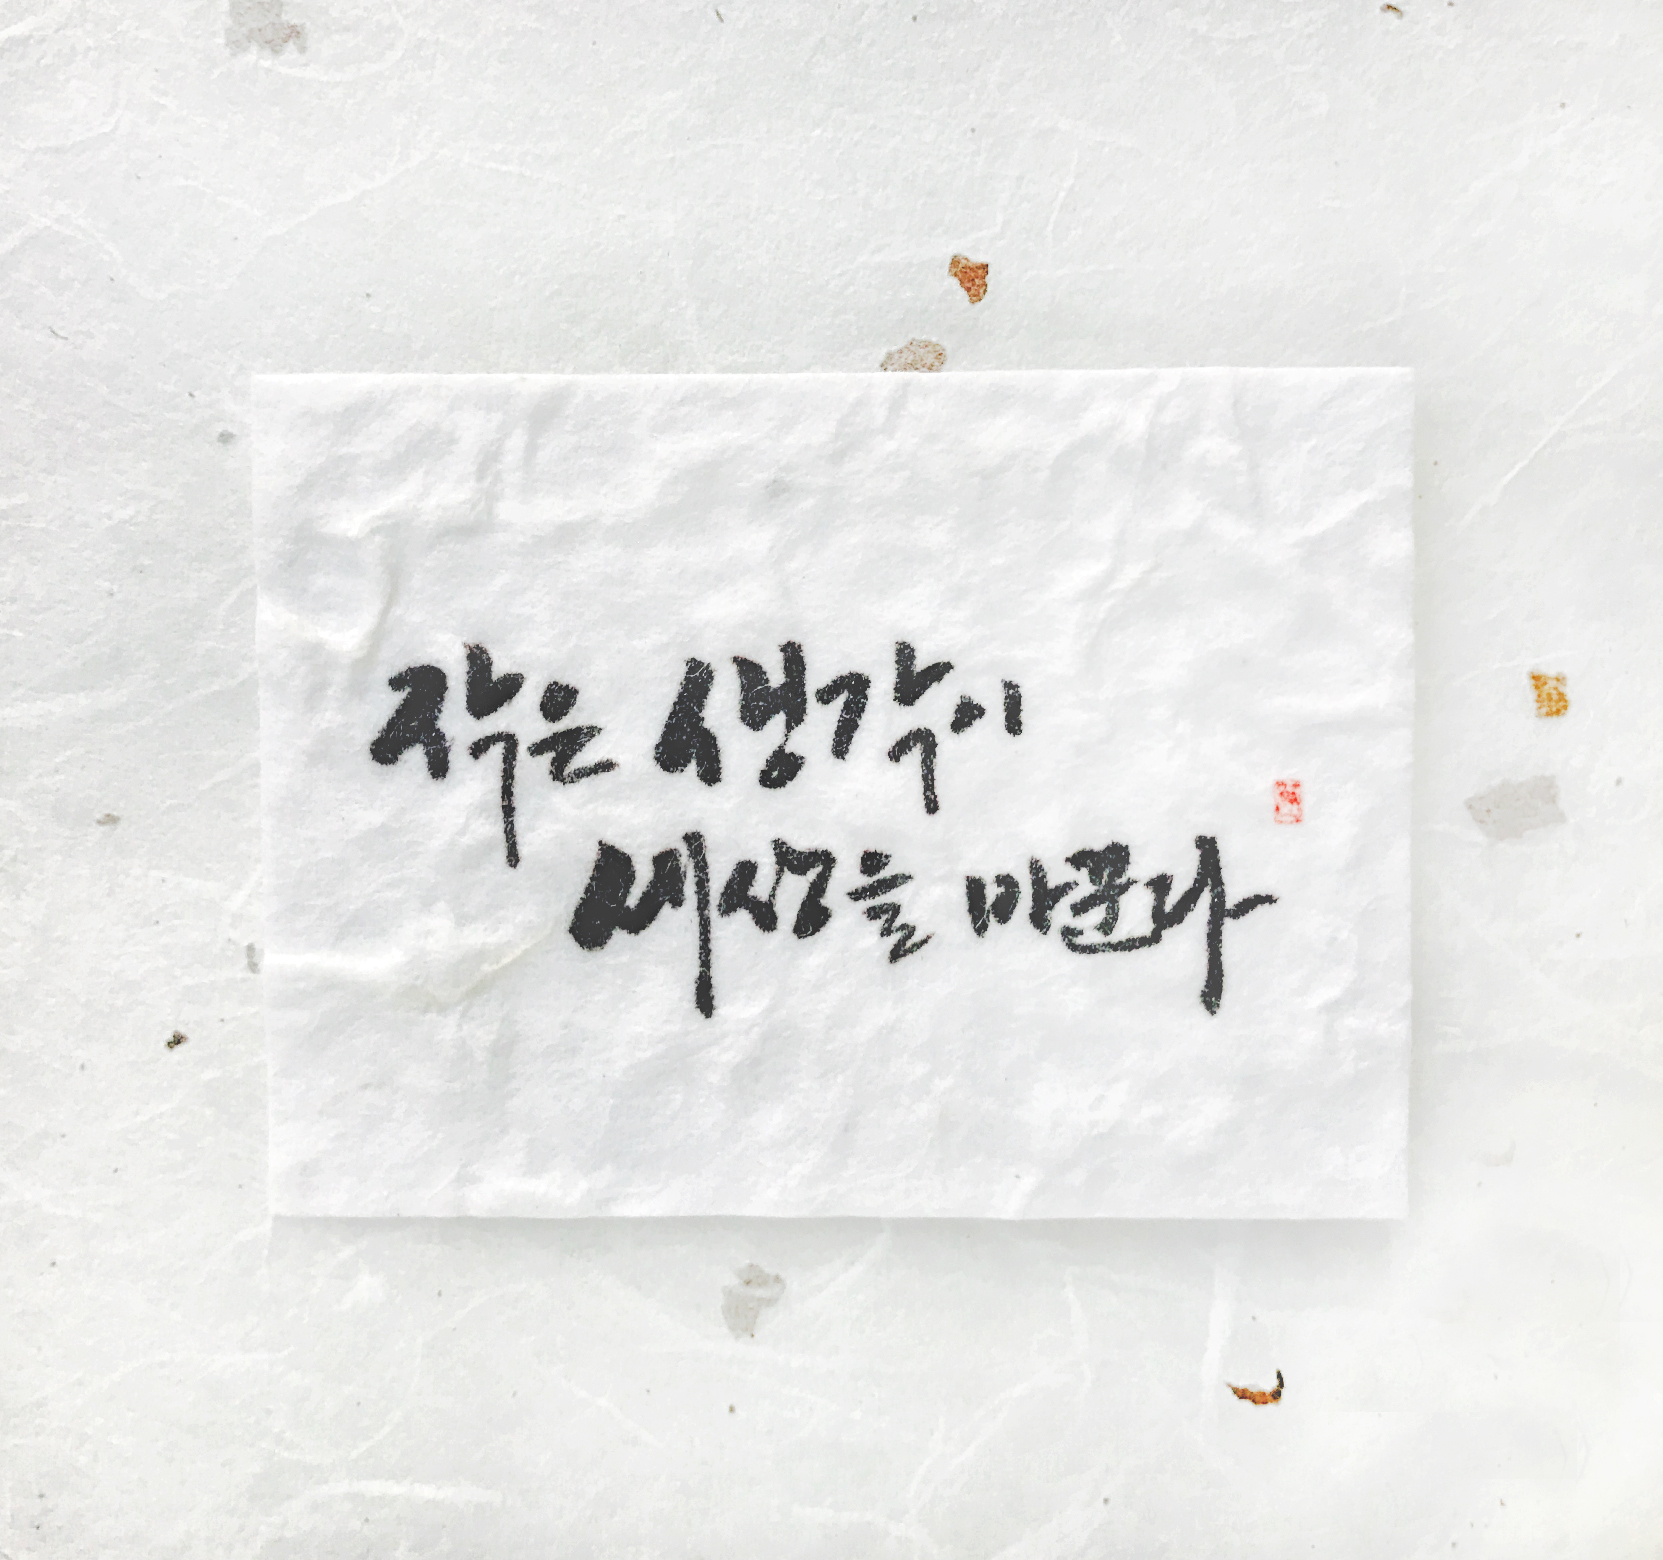 작은 생각이
세상을 바꾼다